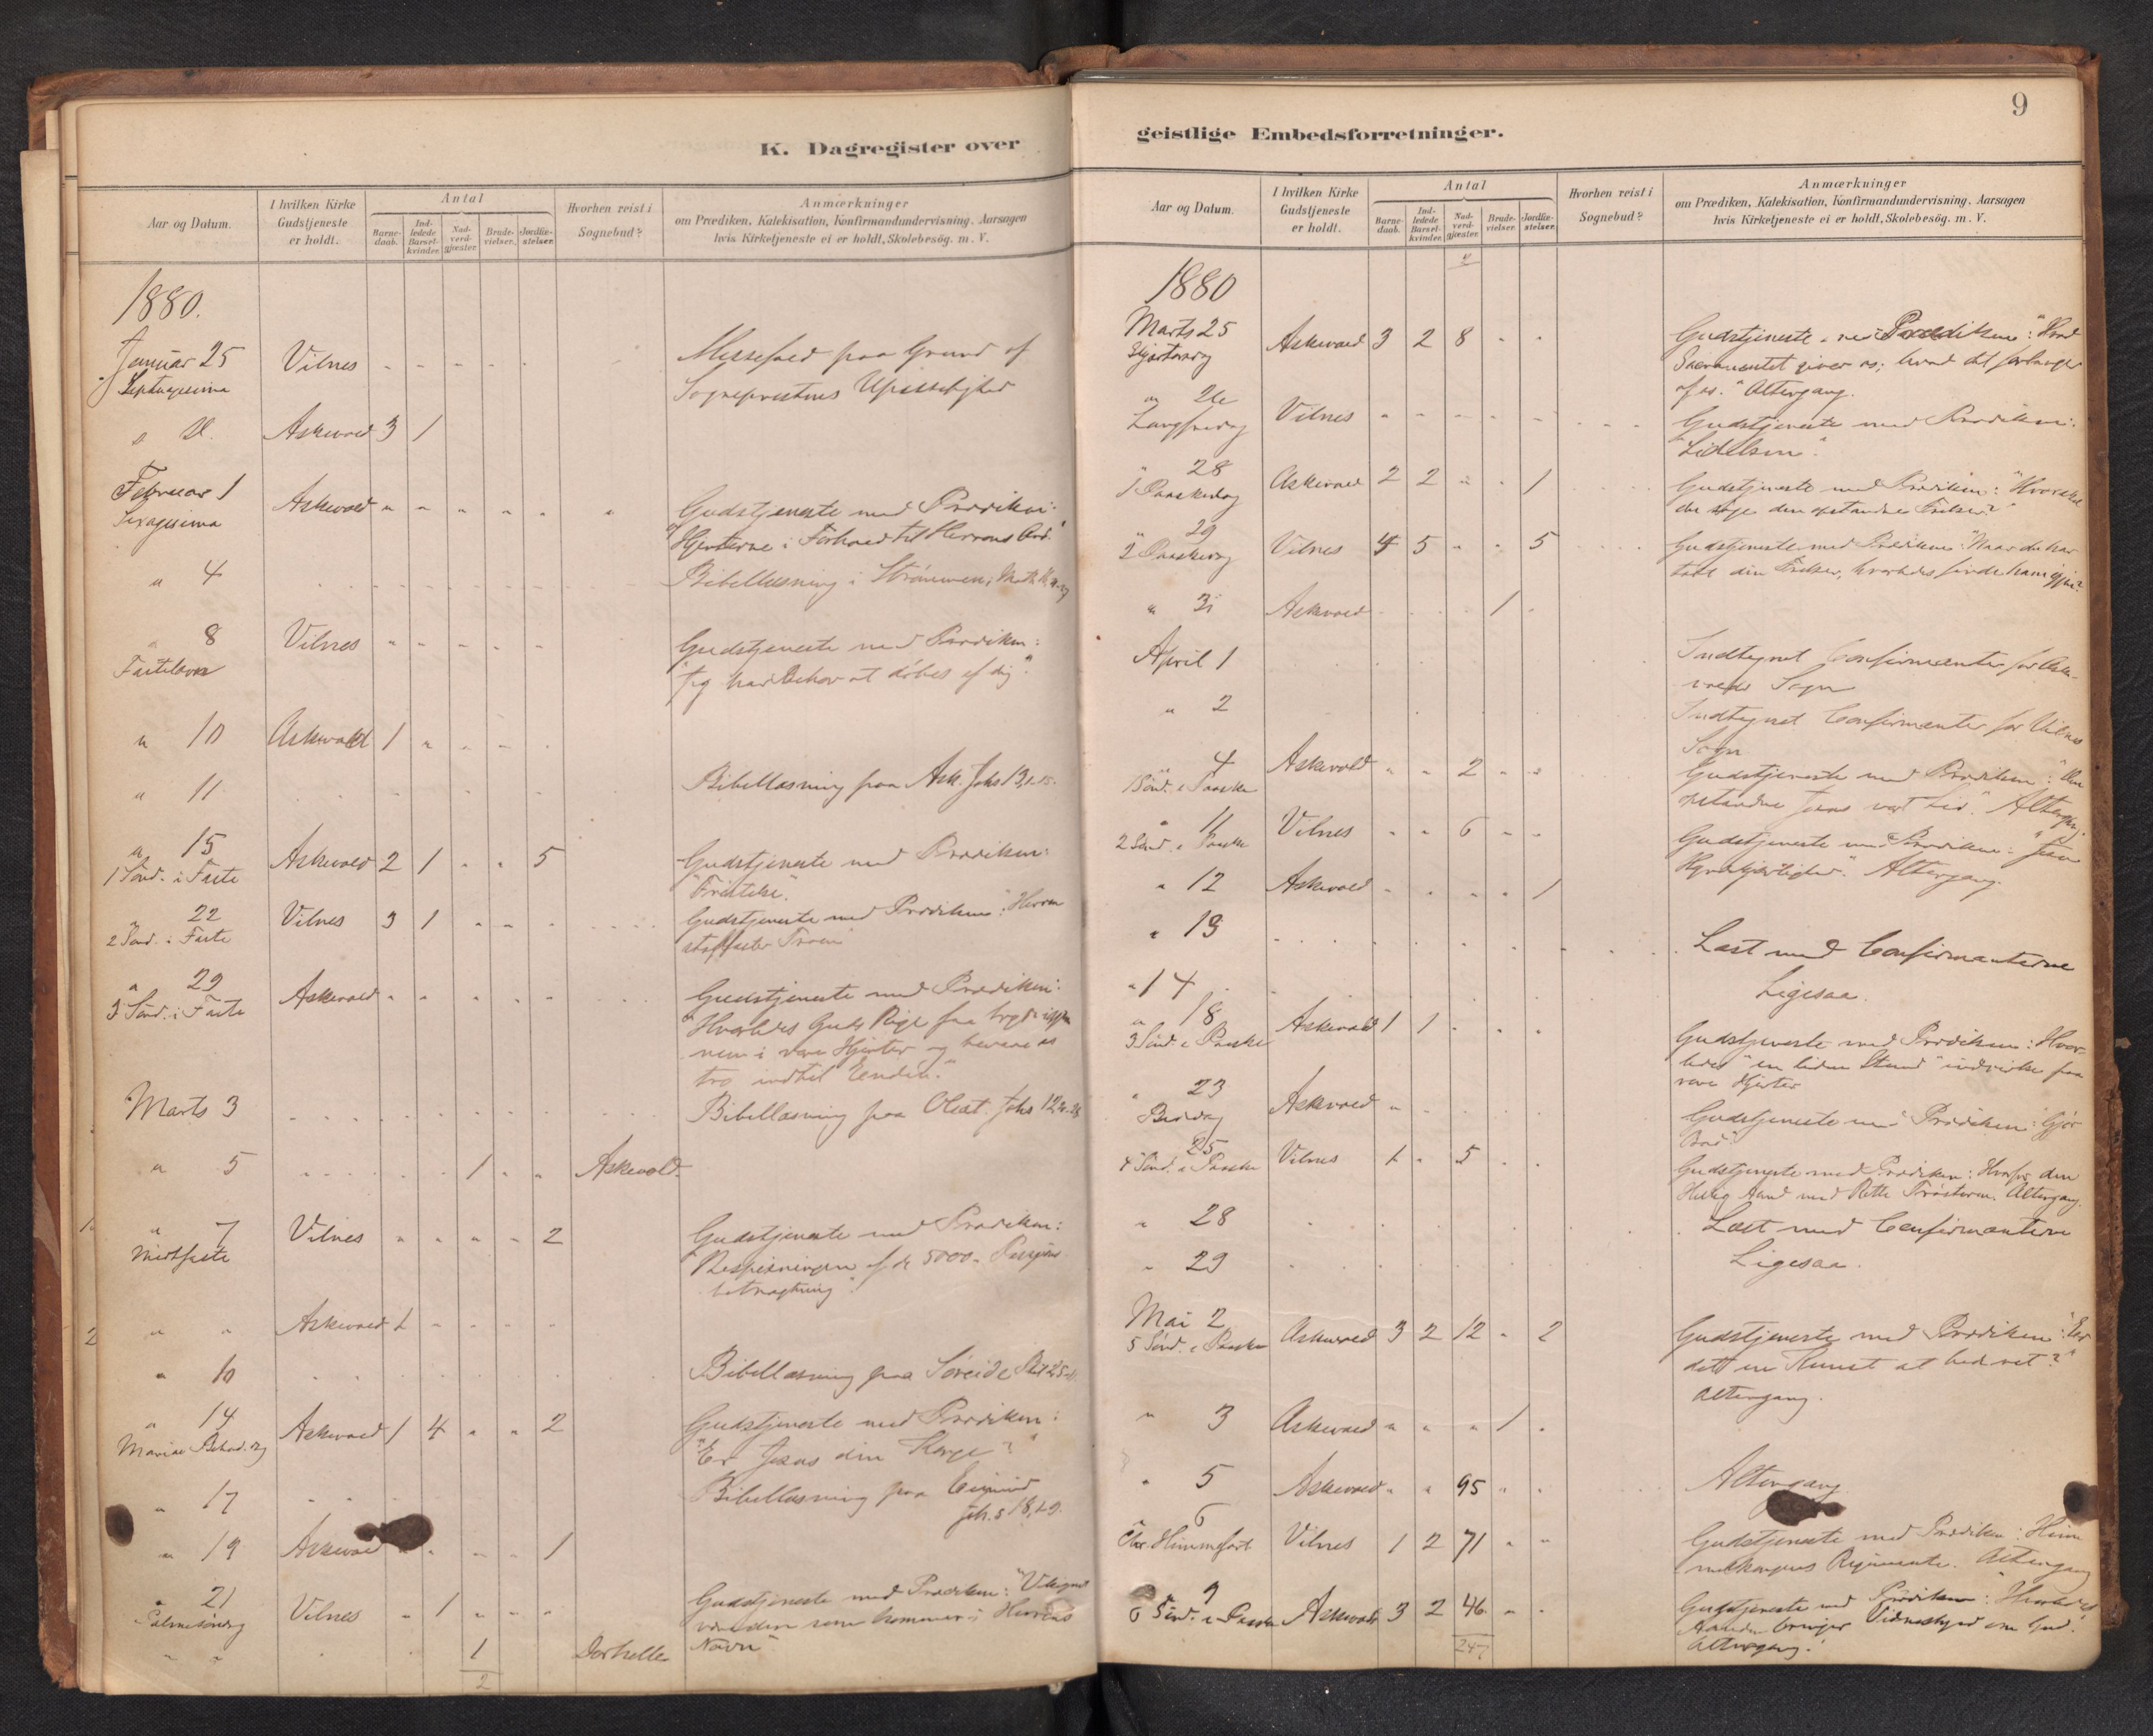 K. Dagregister over
Aar og Datum.
I hvilken Kirke Gudstjeneste er holdt.
Antal
Barne-daab.
Ind-ledede Barsel-kvinder.
Nad-verd-gjæster.
Brude-vielser.
Jordfæ-stelser.
Hvorhen reist i Sognebud?
Anmærkninger
om Prædiken, Katekisation, Konfirmandundervisning, Aarsagen
hvis Kirketjeneste ei er holdt, Skolebesøg. m. V.
1880.
Januar 25 Vilnes " " " " " Messefald paa Grund af
Septuagesima Sognepræstens Upasselighed
" D. Askevold 3 1
Februar 1 Askevold " " " " " " Gudstjeneste med Prædiken:
Sexagesima "Hjerterne i Forhold til Herrens Ord."
" 4 Bibellæsning i Strømmen, Matth
" 8 Vilnes " " " " " Gudstjeneste med Prædiken:
Fastelavn "Jeg har Behov at døbes af dig".
" 10 Askevold 1 " " " "
" 11 Bibellæsning paa Ask. Johs 13,1-15.
" 15 Askevold 2 1 " " 5 Gudstjeneste med Prædiken:
1 Sønd. i Faste "Fristelse".
" 22 Vilnes 3 1 " " " Gudstjeneste med Prædiken: "Herren
2 Sønd. i Faste Troen"
" 29 Askevold " " " " " Gudstjeneste med Prædiken:
3 Sønd. i Faste "Hvorledes Guds Rige faa
i vore Hjerter og bevare os
tro indtil Enden."
Marts 3 Bibellæsning paa Johs 12
" 5 1 " " Askevold
" 7 Vilnes " " " " 2 Gudstjeneste med Prædiken:
Midtfaste "Bespisningen af de 5000.
betragtning".
" " Askevold 1 " " " "
" 10 Bibellæsning paa Søreide
" 14 Askevold 1 4 " " 2 Gudstjeneste med Prædiken:
Mariæ Bebud. Dg "Er Jesus din Konge?"
" 17 Bibellæsning paa
Joh. 5
" 19 Askevold " " " 1
" 21 Vilnes " 1 " " " Gudstjeneste med Prædiken: "Velsignet
Palmesøndag være den som kommer i Herrens
" " 1 Navn"
2
geistlige Embedsforretninger.
9
Aar og Datum.
I hvilken Kirke Gudstjeneste er holdt.
Antal
Barne-daab.
Ind-ledede Barsel-kvinder.
Nad-verd-gjæster.
Brude-vielser.
Jordfæ-stelser.
Hvorhen reist i Sognebud?
Anmærkninger
om Prædiken, Katekisation, Konfirmandundervisning, Aarsagen
hvis Kirketjeneste ei er holdt, Skolebesög. m. V.
1880
Marts 25 Askevold 3 2 8 " " Gudstjeneste med Prædiken: "Hvad
Skjærtorsdag Sacramentet giver os; hvad det forlanger
af os." Altergang.
" 26 Vilnes " " " " " Gudstjeneste med Prædiken:
Langfredag "Lidelsen".
" 28 Askevold 2 2 " " 1 Gudstjeneste med Prædiken: "Hvor skal
1 Paaskedag du søge den opstandne Frelser?"
" 29 Vilnes 4 5 " " 5 Gudstjeneste med Prædiken: "Naar du har
2 Paaskedag tabt din Frelser, hvorledes finde ham igjen?
" 31 Askevold 1
April 1 Indtegnet Confirmanter for Aske-
volds Sogn
" 2 Indtegnet Confirmanter for Vilnes
Sogn
" 4 Askevold " " 2 " " Gudstjeneste med Prædiken: "Den
1 Sønd. e Paaske opstandne Jesus vort Liv". Altergang.
" 11 Vilnes " " 6 " " Gudstjeneste med Prædiken: "Jesu
2 Sønd. e Paaske Hyrdekjærlighed". Altergang.
" 12 Askevold " " " " 1
" 13 Læst med Confirmanterne
" 14 Ligesaa.
" 18 Askevold 1 1 " " " Gudstjeneste med Prædiken: Hvor-
3 Sønd. e Paaske ledes "en liden Stund" indvirke paa
vore Hjerter
" 23 Askevold " Gudstjeneste med Prædiken: "Gjør
Bededag Bod"
" 25 Vilnes 1 " 5 " " Gudstjeneste med Prædiken: Hvorfor den
4 Sønd. e Paaske Hellig Aand med Rette Trøsteren. Altergang.
" 28 Læst med Confirmanterne
" 29 Ligesaa.
Mai 2 Askevold 3 2 12 " 2 Gudstjeneste med Prædiken: "Er
5 Sønd. e Paaske det en Kunst at bede ret?"
Altergang.
" 3 Askevold " " " 1 "
" 5 Askevold " " 95 " " Altergang
" 6 Vilnes 1 2 71 " " Gudstjeneste med Prædiken: Him-
Chr. Himmelfart melkongens Regimente. Altergang
" 9 Askevold 3 2 46 " " Gudstjeneste med Prædiken: "Hvorledes
6 Sønd. e Paaske Aanden bringer Vidnesbyrd om Gud."
247 Altergang.